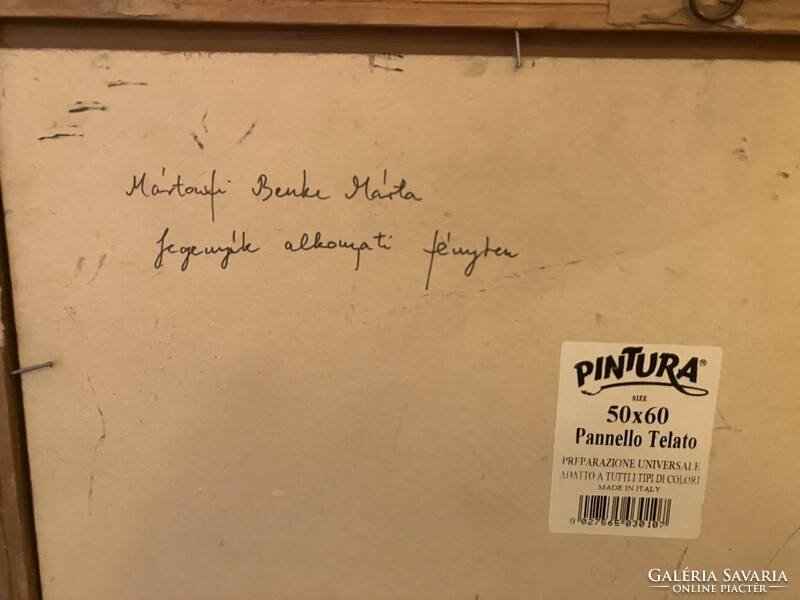 Mártonfi Benke Márta
Jegenyék alkonyati fényben
PINTURA®
SIZE
50x60
Pannello Telato
PREPARAZIONE UNIVERSALE
ADATTO A TUTTI I TIPI DI COLORI
MADE IN ITALY
8 027565 030107
GALÉRIA SAVARIA
ONLINE PIACTÉR
www.galeriasavaria.hu